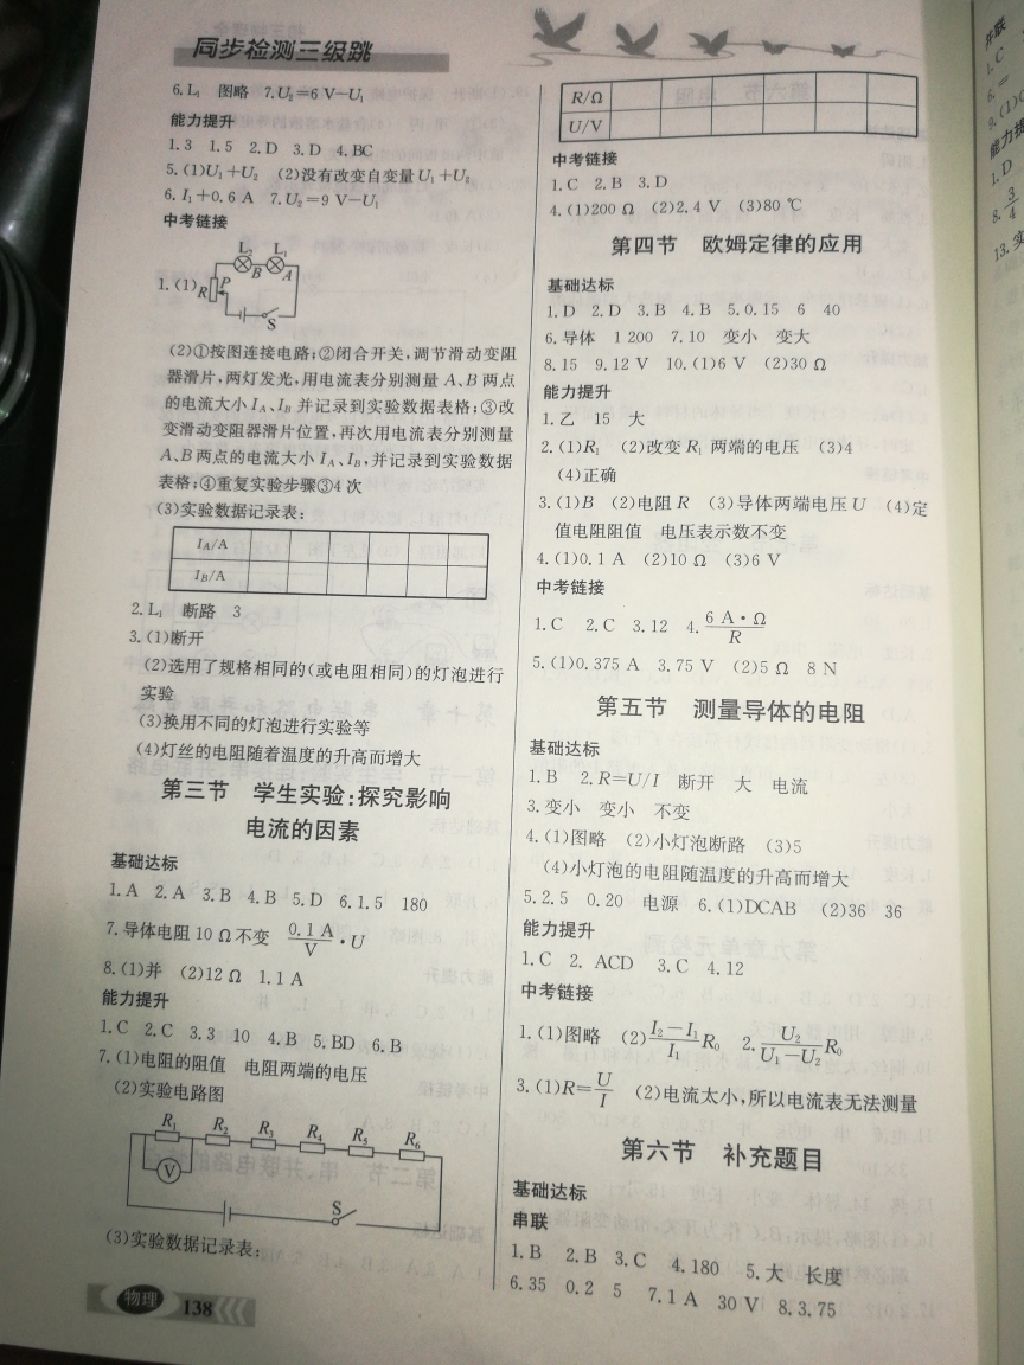 同步检测三级跳
6. L₁ 图略 7. U₂=6 V−U₁
能力提升
1. 3 1.5 2. D 3. D 4. BC
5. (1)U₁+U₂ (2)没有改变自变量 U₁+U₂
6. I₁+0.6 A 7. U₂=9 V−U₁
中考链接
1. (1)
L₂ L₁
B A
R P
S
(2)①按图连接电路;②闭合开关,调节滑动变阻
器滑片,两灯发光,用电流表分别测量 A、B 两点
的电流大小 I_A、I_B 并记录到实验数据表格;③改
变滑动变阻器滑片位置,再次用电流表分别测量
A、B 两点的电流大小 I_A、I_B,并记录到实验数据
表格;④重复实验步骤③4 次
(3)实验数据记录表:
I_A/A
I_B/A
2. L₁ 断路 3
3. (1)断开
(2)选用了规格相同的(或电阻相同)的灯泡进行
实验
(3)换用不同的灯泡进行实验等
(4)灯丝的电阻随着温度的升高而增大
第三节 学生实验:探究影响
电流的因素
基础达标
1. A 2. A 3. B 4. B 5. D 6. 1.5 180
7. 导体电阻 10 Ω 不变 0.1 A/V · U
8. (1)并 (2)12 Ω 1.1 A
能力提升
1. C 2. C 3. 3 10 4. B 5. BD 6. B
7. (1)电阻的阻值 电阻两端的电压
(2)实验电路图
R₁ R₂ R₃ R₄ R₅ R₆
V
S
(3)实验数据记录表:
物理 138
R/Ω
U/V
中考链接
1. C 2. B 3. D
4. (1)200 Ω (2)2.4 V (3)80 ℃
第四节 欧姆定律的应用
基础达标
1. D 2. D 3. B 4. B 5. 0.15 6 40
6. 导体 1 200 7. 10 变小 变大
8. 15 9. 12 V 10. (1)6 V (2)30 Ω
能力提升
1. 乙 15 大
2. (1)R₁ (2)改变 R₁ 两端的电压 (3)4
(4)正确
3. (1)B (2)电阻 R (3)导体两端电压 U (4)定
值电阻阻值 电压表示数不变
4. (1)0.1 A (2)10 Ω (3)6 V
中考链接
1. C 2. C 3. 12 4. 6 A·Ω/R
5. (1)0.375 A 3.75 V (2)5 Ω 8 N
第五节 测量导体的电阻
基础达标
1. B 2. R=U/I 断开 大 电流
3. 变小 变小 不变
4. (1)图略 (2)小灯泡断路 (3)5
(4)小灯泡的电阻随温度的升高而增大
5. 2.5 0.20 电源 6. (1)DCAB (2)36 36
能力提升
1. C 2. ACD 3. C 4. 12
中考链接
1. (1)图略 (2)(I₂−I₁)/I₁ R₀ 2. U₂/(U₁−U₂) R₀
3. (1)R=U/I (2)电流太小,所以电流表无法测量
第六节 补充题目
基础达标
串联
1. B 2. B 3. C 4. 180 5. 大 长度
6. 35 0.2 5 7. 1 A 30 V 8. 3.75
并联
1. C
能力提
1. D
8. 3/4